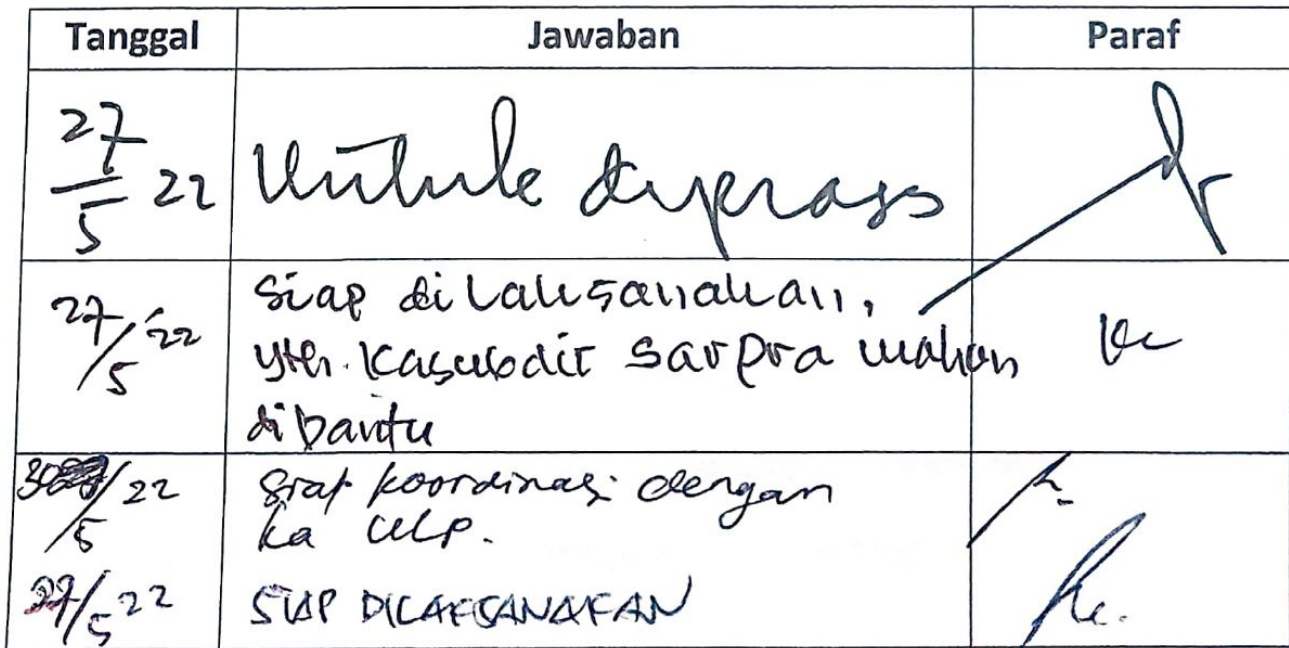 Tanggal Jawaban Paraf
27/5 22 Untuk diproses
27/5 '22 Siap dilaksanakan,
yth. Kasubdit Sarpra mohon
dibantu
30/5 22 Siap koordinasi dengan
ka ULP.
27/5 22 SIAP DILAKSANAKAN